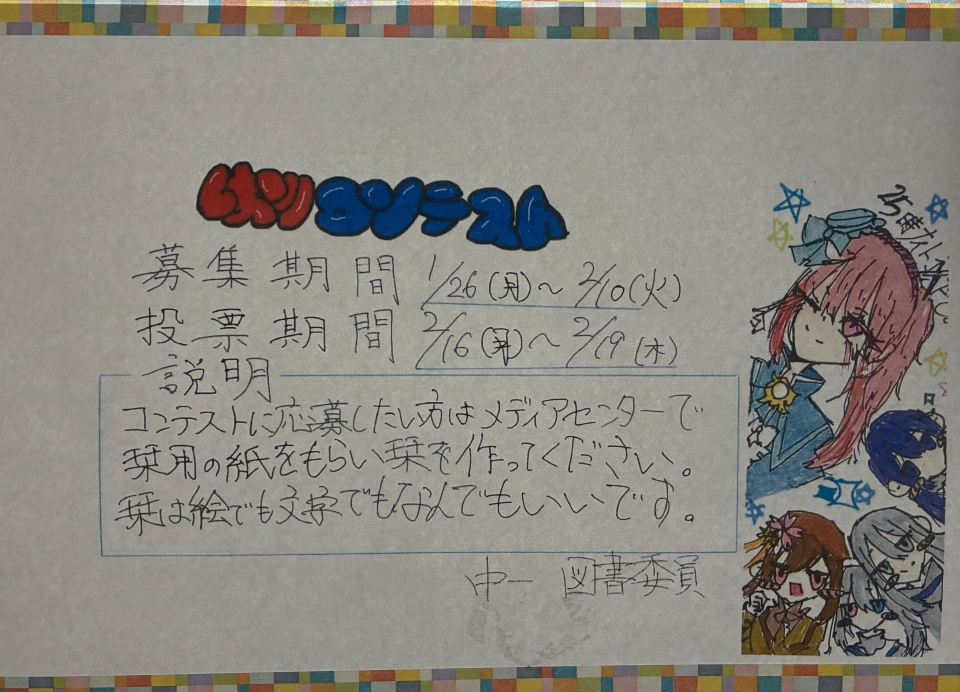 コンテスト
募集期間 1/26(月)～2/10(火)
投票期間 2/16(月)～2/19(木)
説明
コンテストに応募したい方はメディアセンターで
栞用の紙をもらい栞を作ってください。
栞は絵でも文字でもなんでもいいです。
中一 図書委員
25